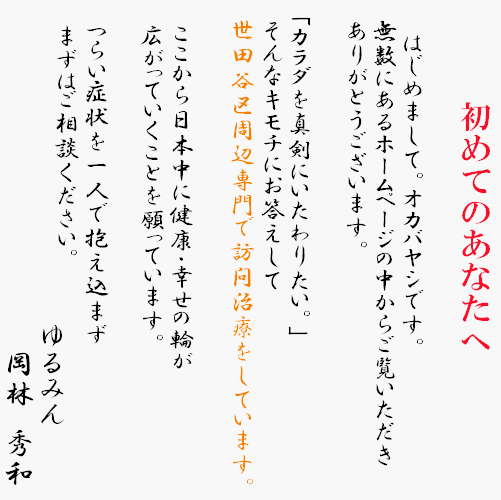 初めてのあなたへ
はじめまして。オカバヤシです。
無数にあるホームページの中からご覧いただき
ありがとうございます。
「カラダを真剣にいたわりたい。」
そんなキモチにお答えして
世田谷区周辺専門で訪問治療をしています。
ここから日本中に健康・幸せの輪が
広がっていくことを願っています。
つらい症状を一人で抱え込まず
まずはご相談ください。
ゆるみん
岡林 秀和